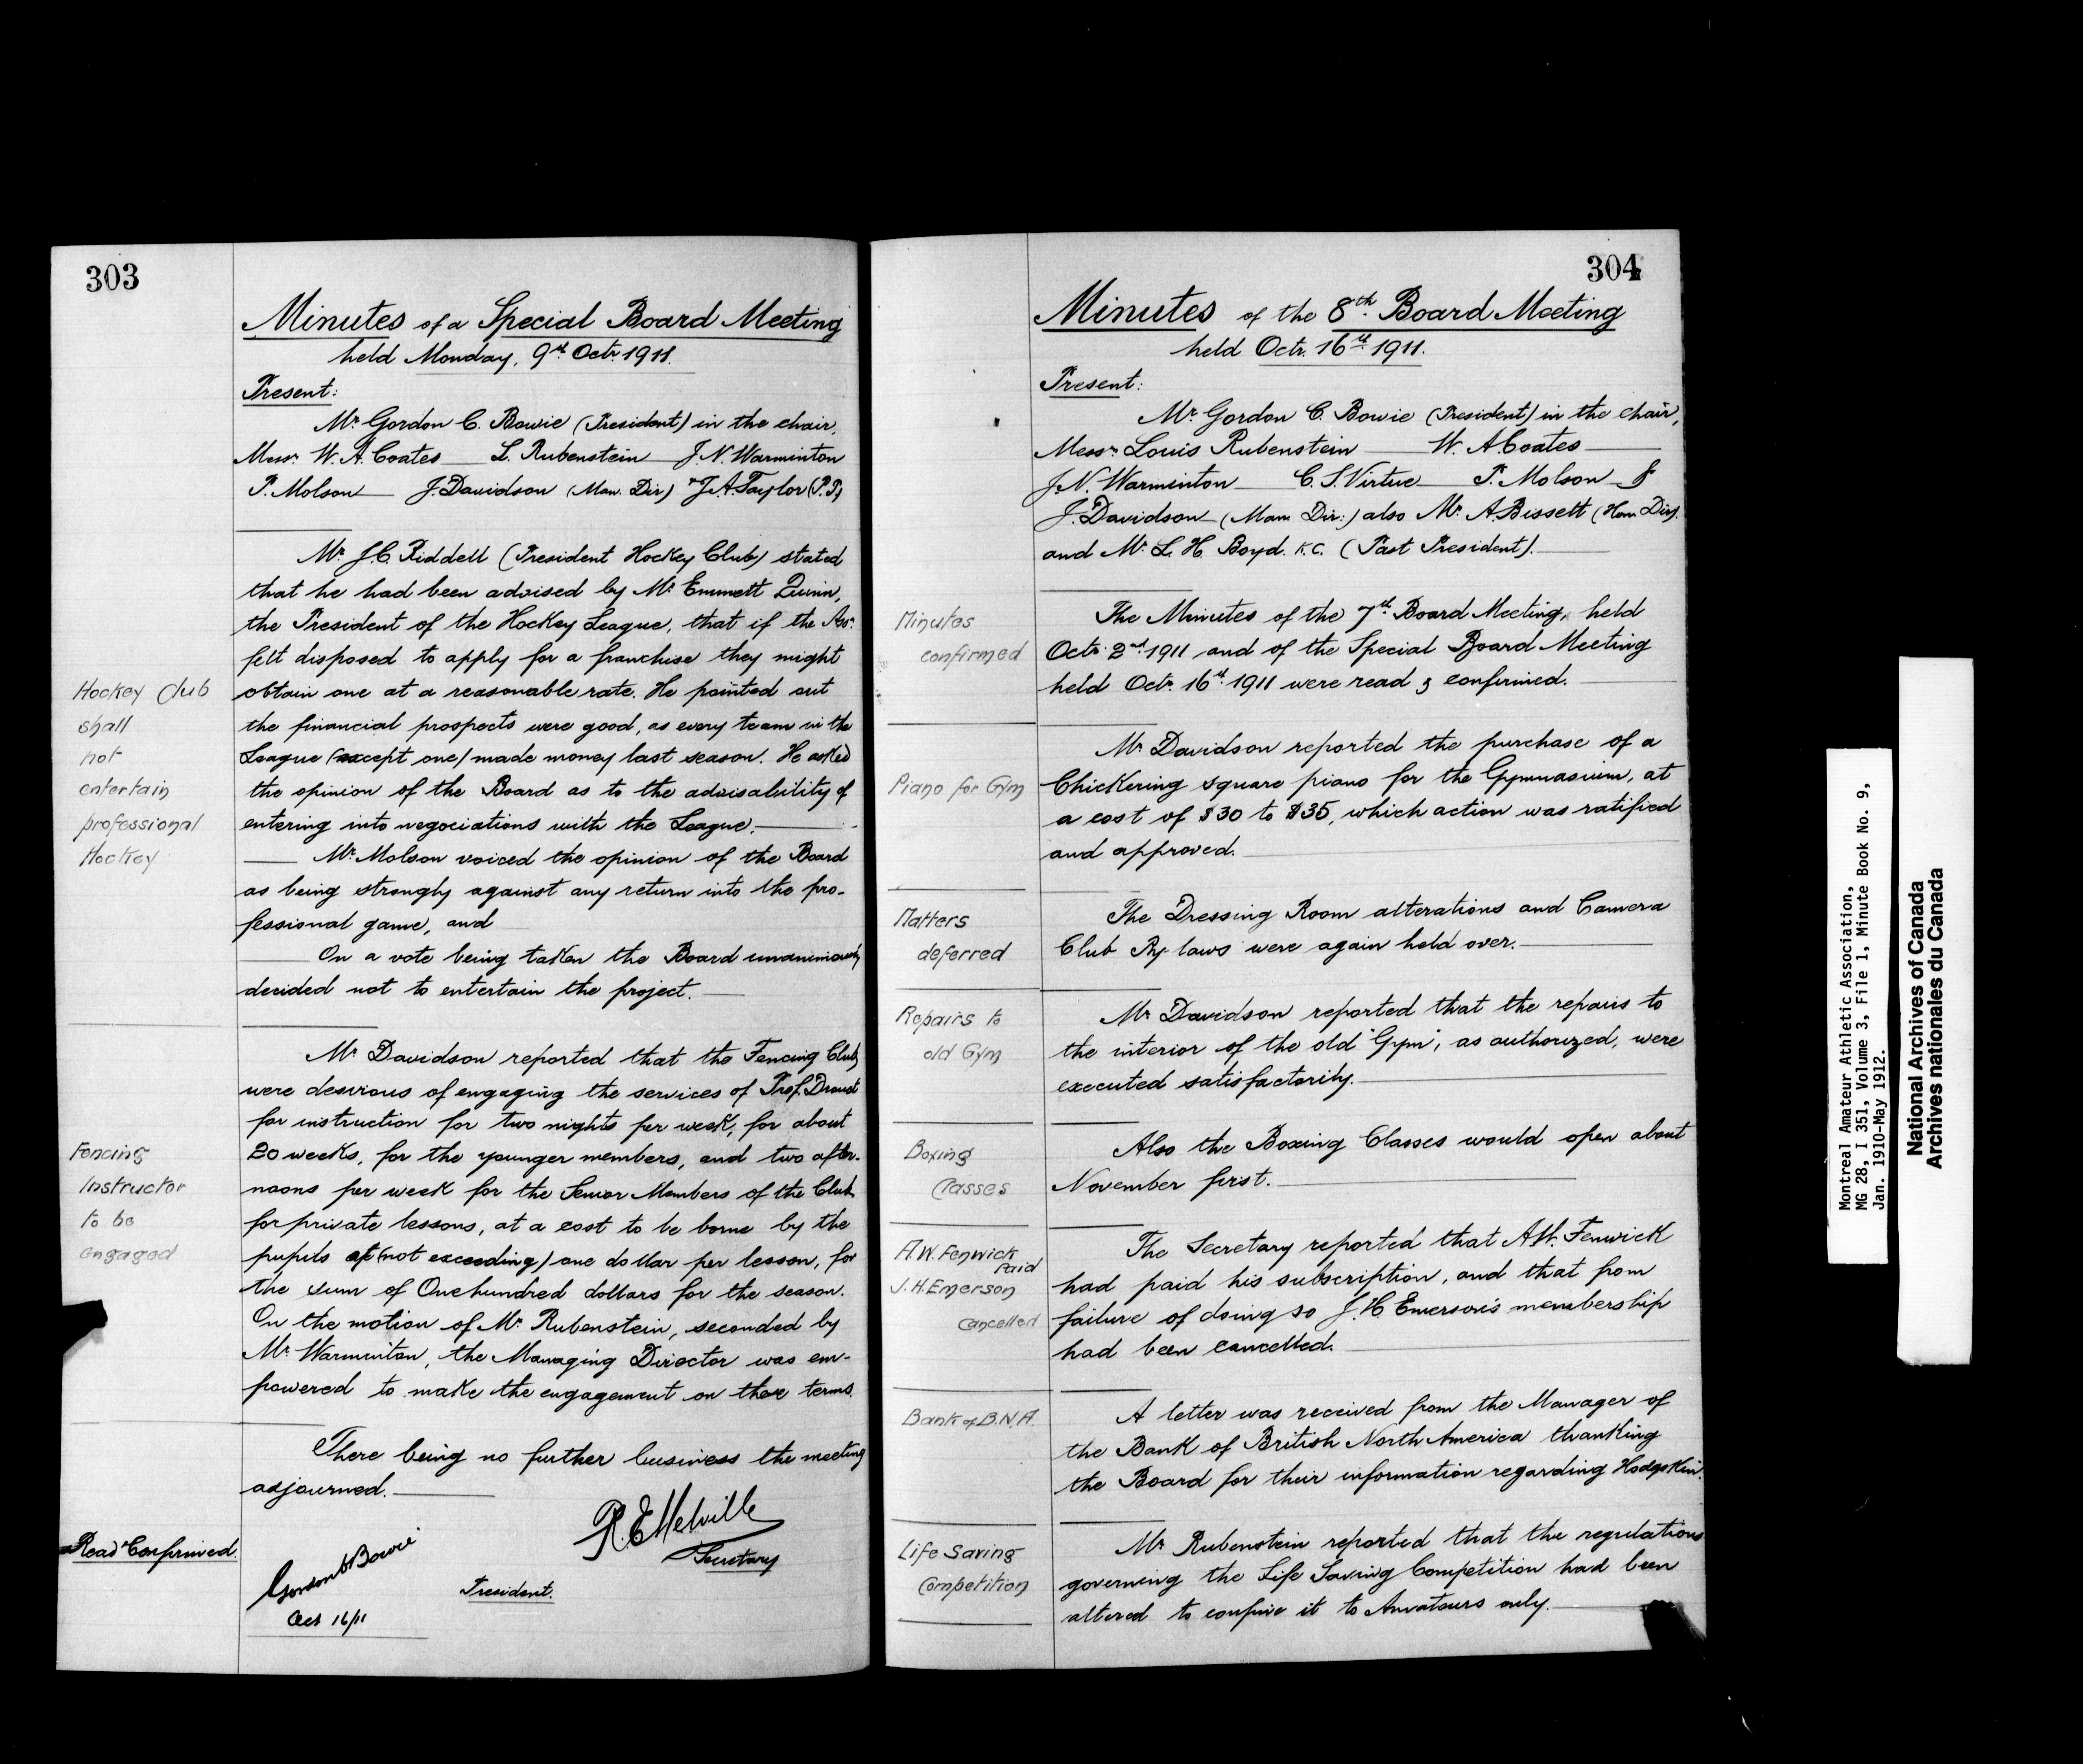 303
Minutes of a Special Board Meeting
held Monday, 9th Octr. 1911.
Present:
Mr. Gordon C. Bowie (President) in the chair,
Messrs. W. A. Coates L. Rubenstein J. N. Warminton
P. Molson J. Davidson (Man. Dir) & J. A. Taylor (P.P.)
Mr. J. C. Riddell (President Hockey Club) stated
that he had been advised by Mr. Emmett Quinn,
the President of the Hockey League, that if the Assn.
felt disposed to apply for a franchise they might
Hockey Club obtain one at a reasonable rate. He pointed out
shall the financial prospects were good, as every team in the
not League (except one) made money last season. He asked
entertain the opinion of the Board as to the advisability of
professional entering into negociations with the League.
Hockey Mr. Molson voiced the opinion of the Board
as being strongly against any return into the pro-
fessional game, and
On a vote being taken the Board unanimously
decided not to entertain the project.
Mr. Davidson reported that the Fencing Club
were desirous of engaging the services of Prof.
for instruction for two nights per week, for about
Fencing 20 weeks, for the younger members, and two after-
Instructor noons per week for the Senior Members of the Club
to be for private lessons, at a cost to be borne by the
engaged pupils of (not exceeding) one dollar per lesson, for
the sum of One hundred dollars for the season.
On the motion of Mr. Rubenstein, seconded by
Mr. Warminton, the Managing Director was em-
powered to make the engagement on these terms.
There being no further business the meeting
adjourned.
R. E. Melville
Secretary
Read & Confirmed.
Gordon C. Bowie
President.
Oct 16/11
304
Minutes of the 8th. Board Meeting
held Octr. 16th. 1911.
Present:
Mr. Gordon C. Bowie (President) in the chair,
Messrs. Louis Rubenstein W. A. Coates
J. N. Warminton C. S. Virtue P. Molson &
J. Davidson (Man Dir:) also Mr. A. Bissett (Hon. Dir).
and Mr. L. H. Boyd. K.C. (Past President).
Minutes The Minutes of the 7th. Board Meeting, held
confirmed Octr. 2nd. 1911 and of the Special Board Meeting
held Octr. 16th. 1911 were read & confirmed.
Mr Davidson reported the purchase of a
Piano for Gym Chickering square piano for the Gymnasium, at
a cost of $30 to $35, which action was ratified
and approved.
Matters The Dressing Room alterations and Camera
deferred Club By laws were again held over.
Repairs to Mr Davidson reported that the repairs to
old Gym the interior of the old "Gym", as authorized, were
executed satisfactorily.
Boxing Also the Boxing Classes would open about
Classes November first.
A. W. Fenwick The Secretary reported that A. W. Fenwick
Paid
J. H. Emerson had paid his subscription, and that from
Cancelled failure of doing so J. H. Emerson's membership
had been cancelled.
Bank of B.N.A. A letter was received from the Manager of
the Bank of British North America thanking
the Board for their information regarding Hodgskin.
Life Saving Mr Rubenstein reported that the regulations
Competition governing the Life Saving Competition had been
altered to confine it to Amateurs only.
Montreal Amateur Athletic Association,
MG 28, I 351, Volume 3, File 1, Minute Book No. 9,
Jan. 1910-May 1912.
National Archives of Canada
Archives nationales du Canada